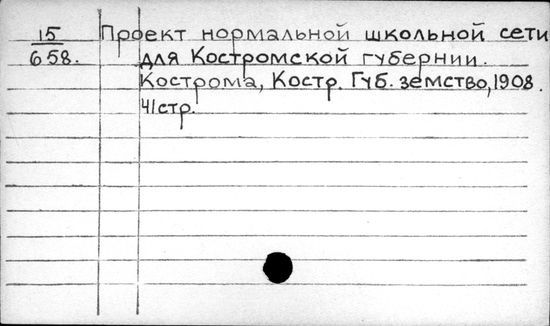 15 Проект нормальной школьной сети
658. для Костромской губернии.
Кострома, Костр. Губ. земство, 1908.
41стр.